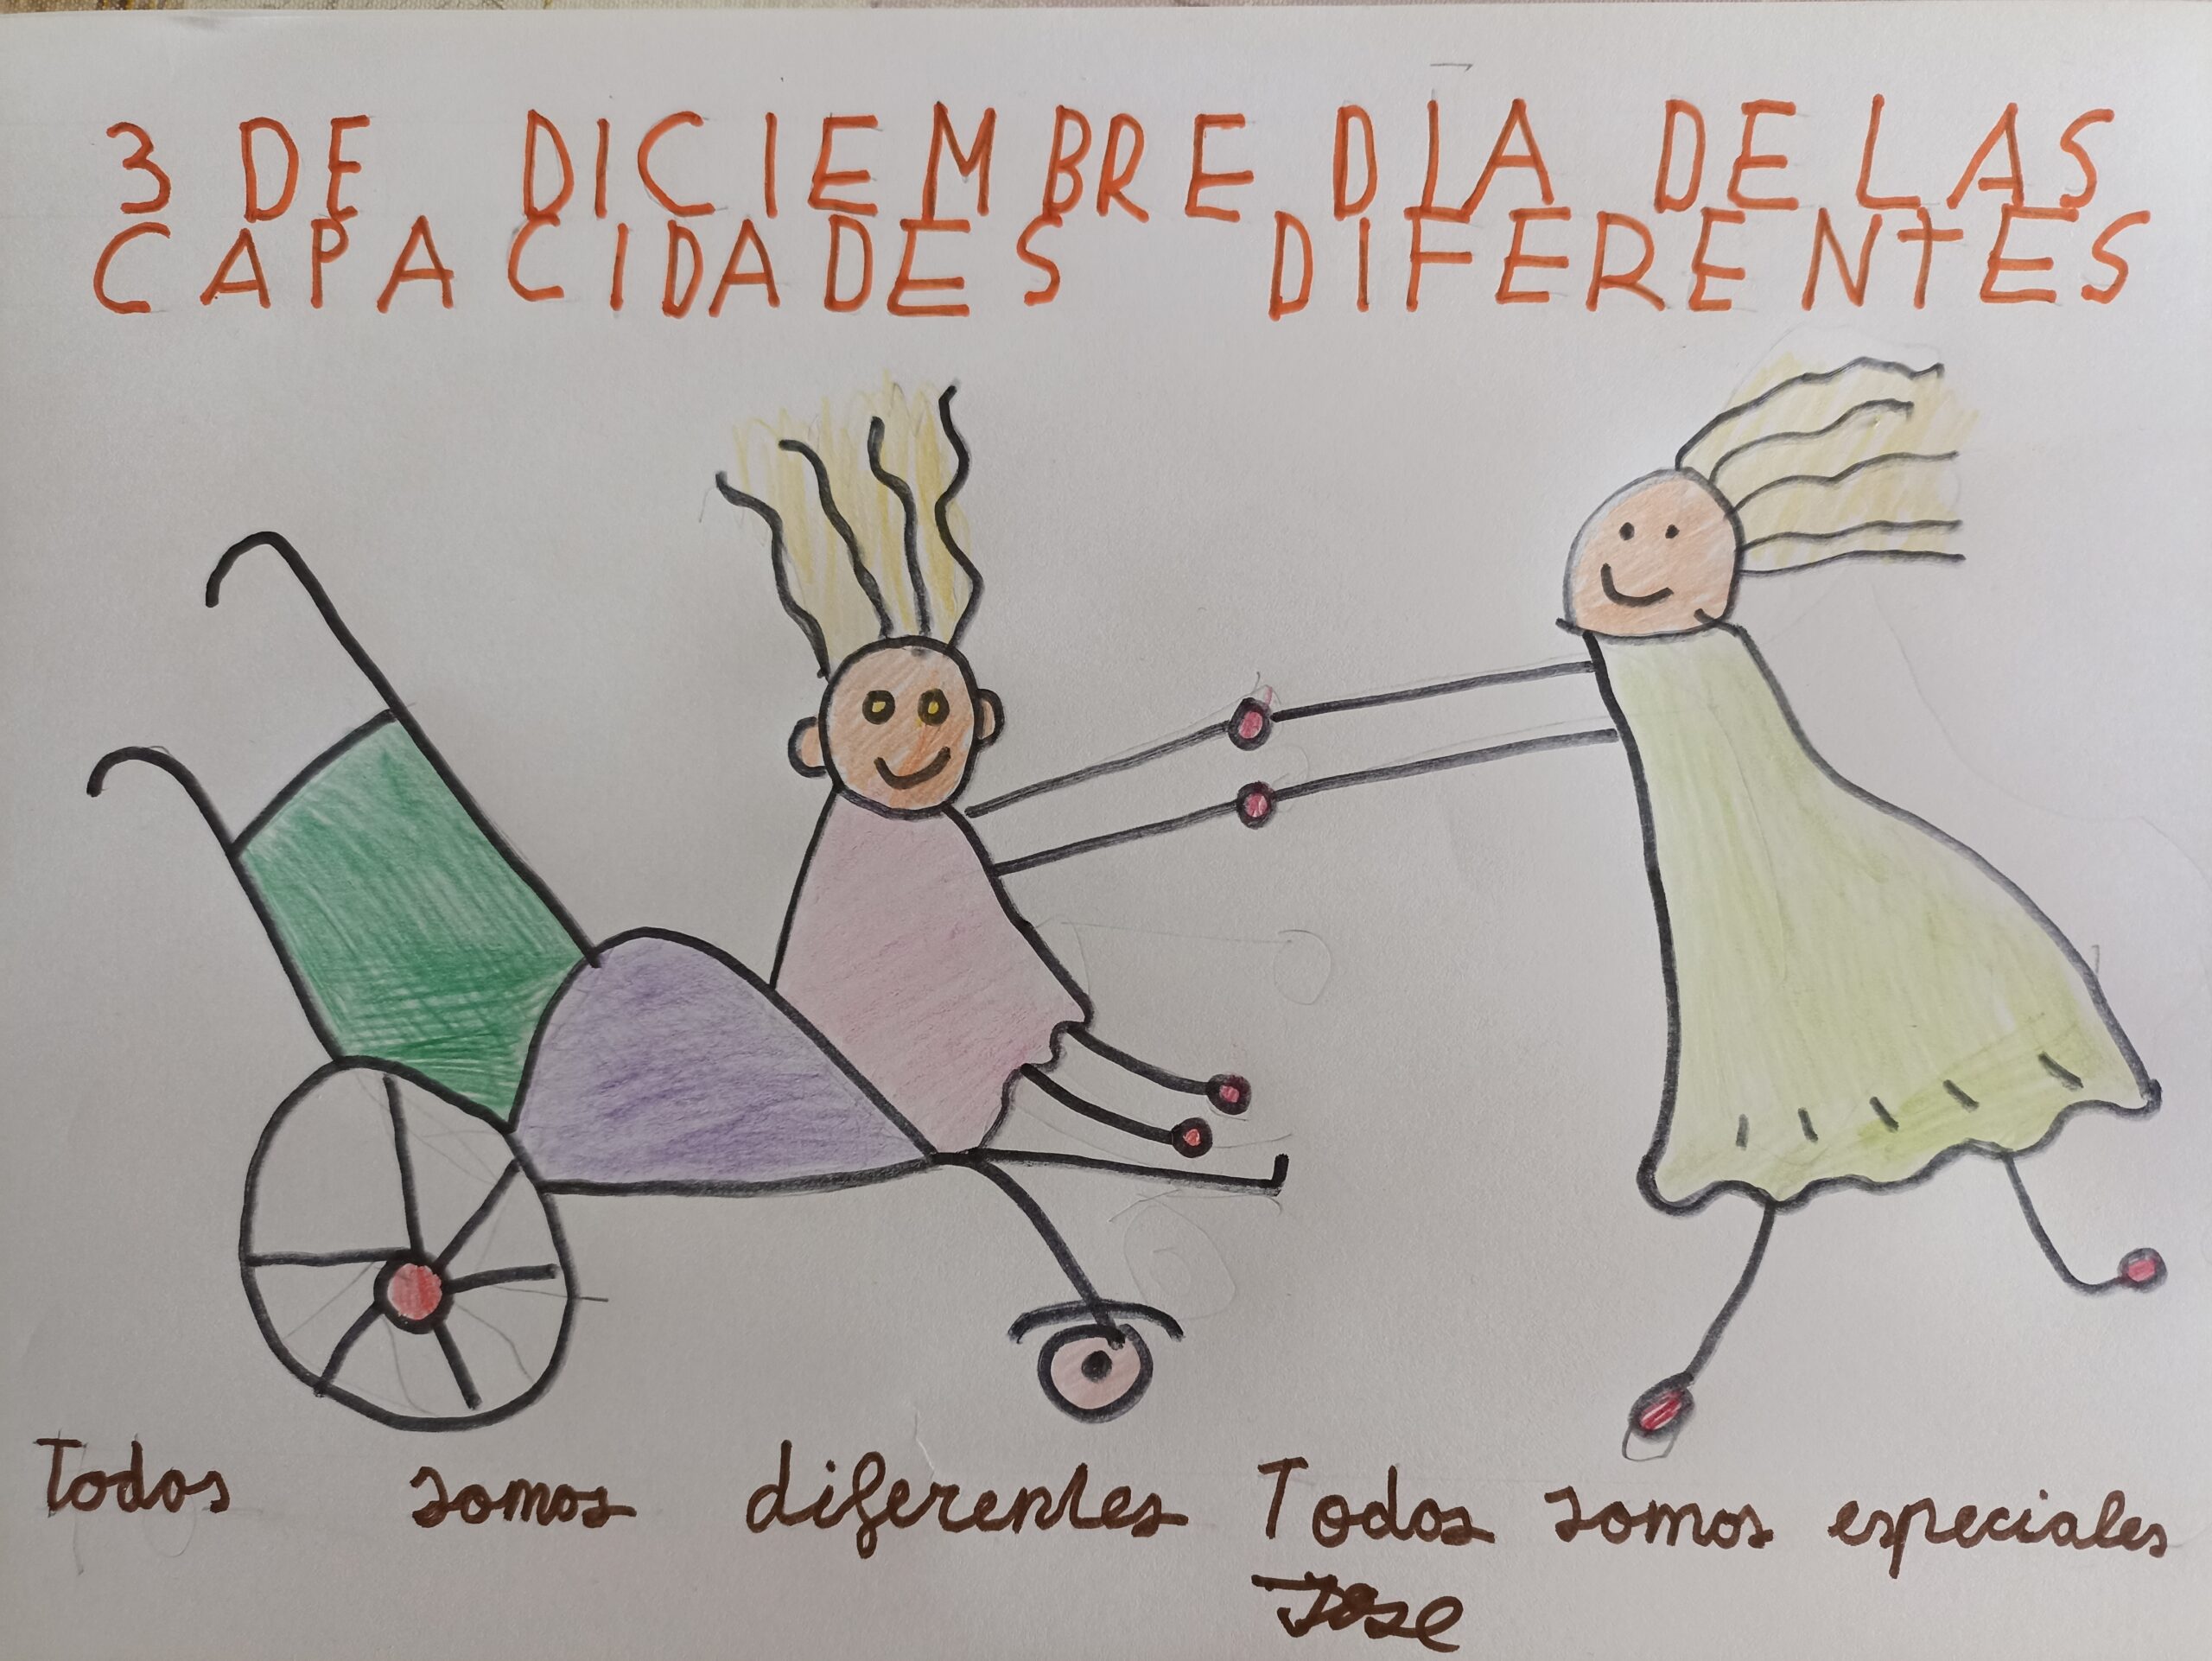 3 DE DICIEMBRE DIA DE LAS
CAPACIDADES DIFERENTES
Todos somos diferentes Todos somos especiales
Jose